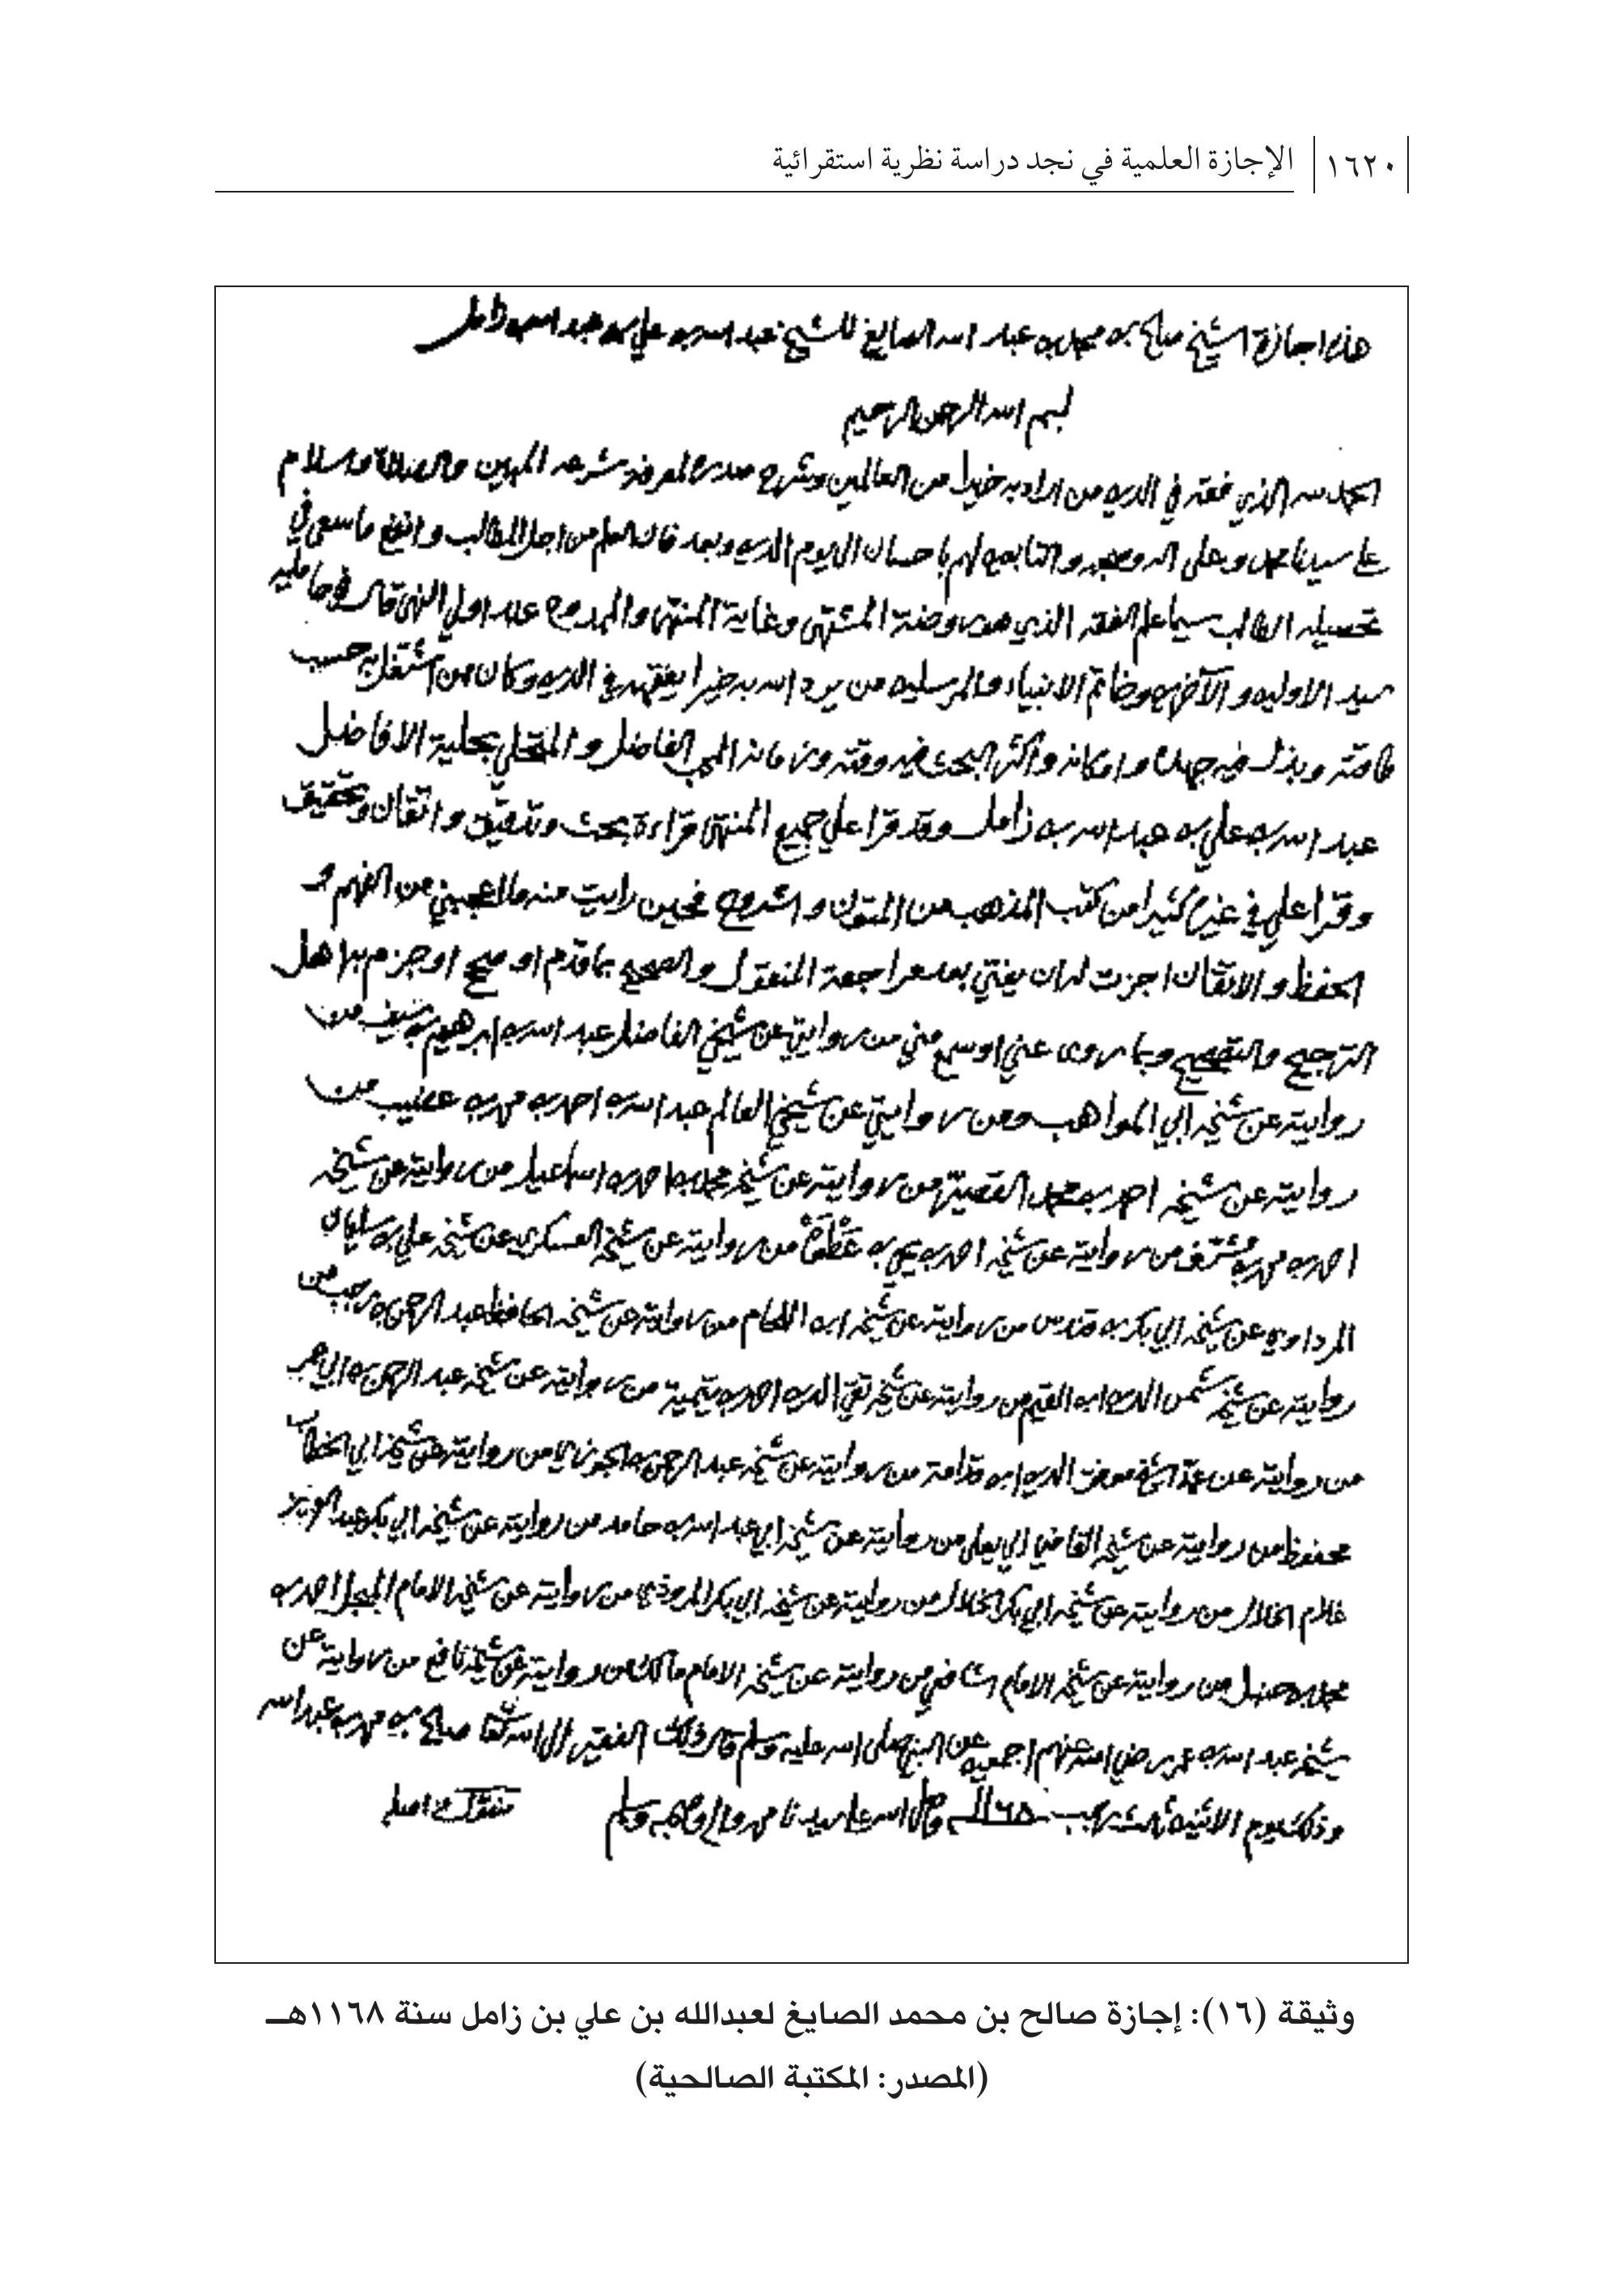 ١٦٢٠ الإجازة العلمية في نجد دراسة نظرية استقرائية
هذه اجازة الشيخ صالح بن محمد بن عبد الله الصايغ للشيخ عبد الله بن علي بن عبد الله بن زامل
بسم الله الرحمن الرحيم
الحمد لله الذي فقه في الدين من اراد به خيرا من العالمين وشرح صدره لمعرفة شرعه المبين والصلاة والسلام
على سيدنا محمد وعلى اله وصحبه والتابعين لهم باحسان الى يوم الدين وبعد فان العلم من اجل المطالب وانفع ما سعى في
تحصيله الطالب سيما علم الفقه الذي هو روضة المشتهى وغاية المنتهى والممدوح عند اولي النهى قال في حامليه
سيد الاولين والآخرين وخاتم الانبياء والمرسلين من يرد الله به خيرا يفقهه في الدين وكان ممن اشتغل به حسب
طاقته وبذل فيه جهده وامكانه واكثر البحث فيه وقته وزمانه المحب الفاضل والمتحلي بحلية الافاضل
عبد الله بن علي بن عبد الله بن زامل وقد قرا علي جميع المنتهى قراءة بحث وتدقيق واتقان وتحقيق
وقرا علي في غيره كثيرا من كتب المذهب من المتون والشروح فحين رايت منه ما اعجبني من الفهم و
الحفظ والاتقان اجزت له ان يفتي بعد مراجعة المنقول والصحيح بما قدم او صحح او جزم بها اهل
الترجيح والتصحيح وبما روى عني او سمع مني من روايتي عن شيخي الفاضل عبد الله بن ابرهيم بن سيف من
روايته عن شيخه ابي المواهب ومن روايتي عن شيخي العالم عبد الله بن احمد بن محمد بن عضيب من
روايته عن شيخه احمد بن محمد القصير من روايته عن شيخه محمد بن احمد بن اسماعيل من روايته عن شيخه
احمد بن محمد بن مشرف من روايته عن شيخه احمد بن يحيى بن عطوة من روايته عن شيخه العسكري عن شيخه علي بن سليمان
المرداوي عن شيخه ابي بكر بن قندس من روايته عن شيخه ابن اللحام من روايته عن شيخه الحافظ عبد الرحمن بن رجب من
روايته عن شيخه شمس الدين ابن القيم من روايته عن شيخه تقي الدين احمد بن تيمية من روايته عن شيخه عبد الرحمن بن ابي عمر
من روايته عن عمه الشيخ موفق الدين ابن قدامة من روايته عن شيخه عبد الرحمن بن الجوزي من روايته عن شيخه ابي الخطاب
محفوظ من روايته عن شيخه القاضي ابي يعلى من روايته عن شيخه ابي عبد الله بن حامد من روايته عن شيخه ابي بكر عبد العزيز
غلام الخلال من روايته عن شيخه ابي بكر الخلال من روايته عن شيخه ابي بكر المروذي من روايته عن شيخه الامام المبجل احمد بن
محمد بن حنبل من روايته عن شيخه الامام الشافعي من روايته عن شيخه الامام مالك من روايته عن شيخه نافع من روايته عن
شيخه عبد الله بن عمر رضي الله عنهم اجمعين عن النبي صلى الله عليه وسلم قال ذلك الفقير الى الله صالح بن محمد بن عبد الله
وذلك يوم الاثنين ثالث رجب وصلى الله على سيدنا محمد واله وصحبه وسلم منقول من اصله
وثيقة (١٦): إجازة صالح بن محمد الصايغ لعبدالله بن علي بن زامل سنة ١١٦٨هـ
(المصدر: المكتبة الصالحية)